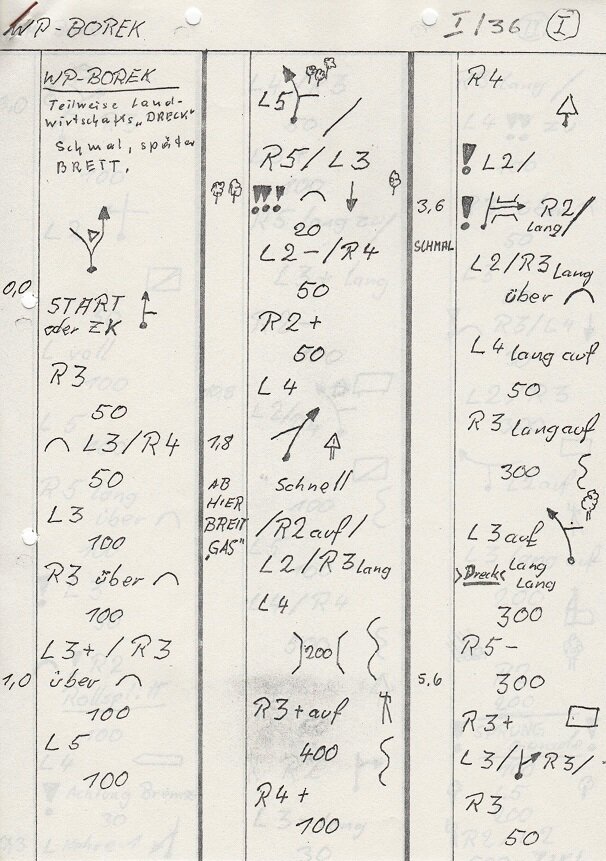 WP-BOREK
I/36 I
WP-BOREK
Teilweise Land-
wirtschafts„DRECK"
Schmal, später
BREIT.
0,0
START
oder ZK
R3
50
L3/R4
50
L3
100
R3 über
100
L3+/R3
1,0 über
100
L5
100
L5 /
R5/L3
!!!
20
L2-/R4
50
R2+
50
L4
1,8
AB
HIER
BREIT
„GAS"
Schnell
/R2 auf/
L2/R3 lang
L4
)200(
R3+ auf
400
R4+
100
R4
! L2/
3,6 ! R2/
lang
SCHMAL
L2/R3 lang
über
L4 lang auf
50
R3 lang auf
300
L3 auf
lang
>Dreck< Lang
300
R5-
5.6 300
R3+
L3/ R3/-
R3
50